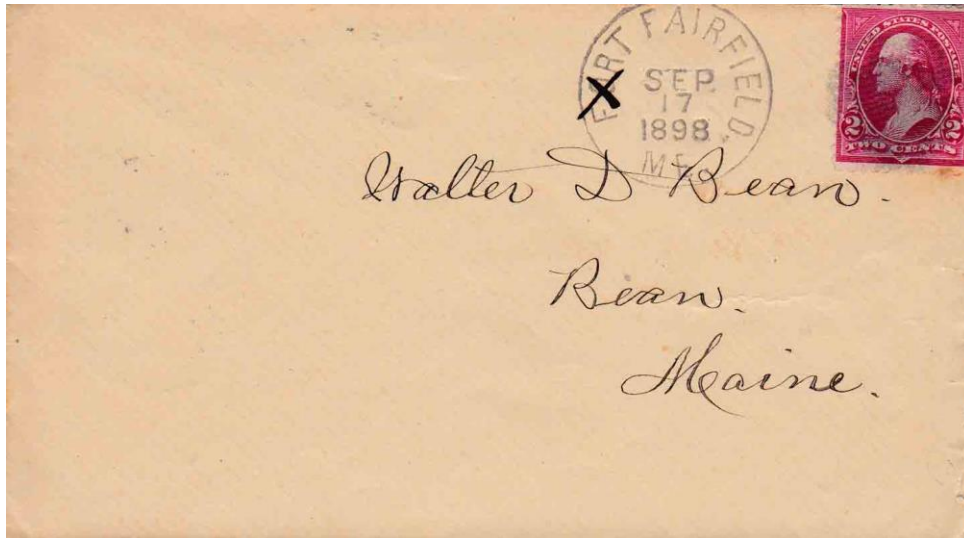 FORT FAIRFIELD.
SEP.
17
1898
ME.
UNITED STATES POSTAGE
2 2
TWO CENTS
X
Walter D Bean.
Bean.
Maine.